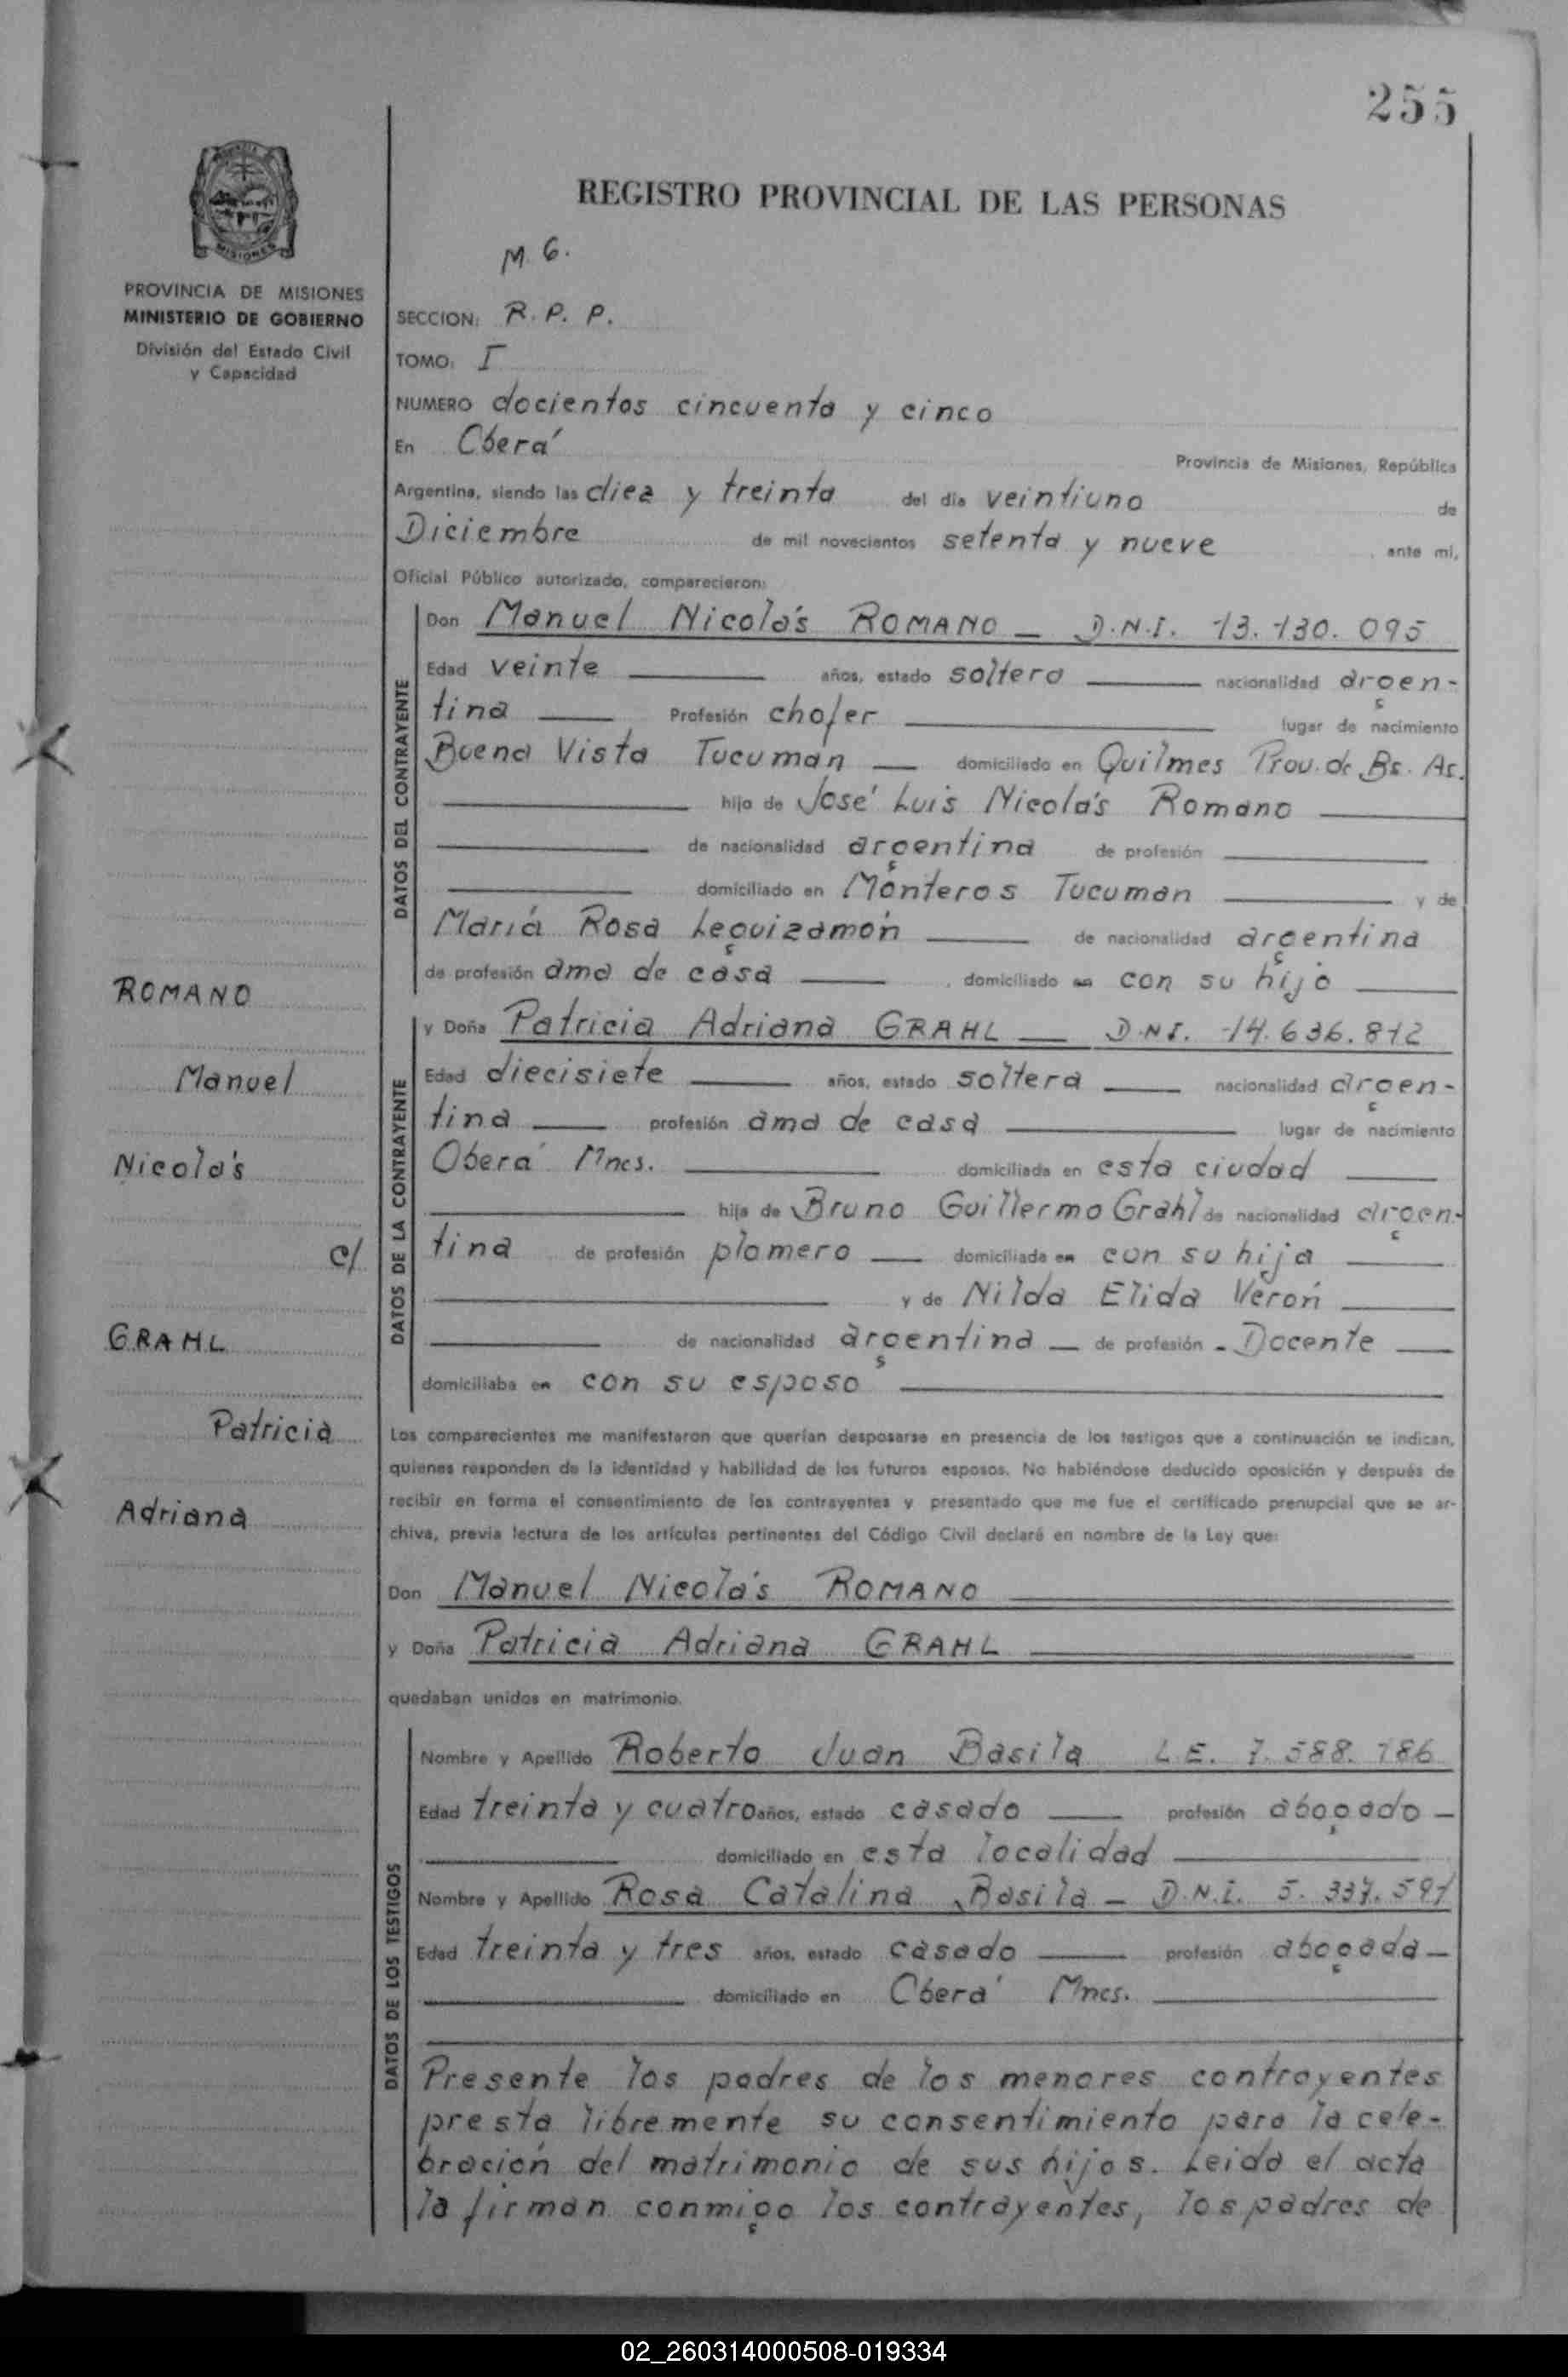 255
REGISTRO PROVINCIAL DE LAS PERSONAS
M. G.
PROVINCIA DE MISIONES
MINISTERIO DE GOBIERNO
División del Estado Civil
y Capacidad
SECCION: R. P. P.
TOMO: I
NUMERO docientos cincuenta y cinco
En Oberá
Provincia de Misiones, República
Argentina, siendo las diez y treinta del día veintiuno de
Diciembre de mil novecientos setenta y nueve, ante mi,
Oficial Público autorizado, comparecieron:
DATOS DEL CONTRAYENTE
Don Manuel Nicolás ROMANO — D.N.I. 13.130.095
Edad veinte años, estado soltero nacionalidad argen-
tina Profesión chofer lugar de nacimiento
Buena Vista Tucumán domiciliado en Quilmes Prov. de Bs. As.
hijo de José Luis Nicolás Romano
de nacionalidad argentina de profesión
domiciliado en Monteros Tucumán y de
María Rosa Leguizamón de nacionalidad argentina
de profesión ama de casa, domiciliado en con su hijo
ROMANO
Manuel
Nicolás
c/
GRAHL
Patricia
Adriana
DATOS DE LA CONTRAYENTE
y Doña Patricia Adriana GRAHL — D.N.I. 14.636.812
Edad diecisiete años, estado soltera nacionalidad argen-
tina profesión ama de casa lugar de nacimiento
Oberá Mnes. domiciliada en esta ciudad
hija de Bruno Guillermo Grahl de nacionalidad argen-
tina de profesión plomero domiciliada en con su hija
y de Nilda Elida Verón
de nacionalidad argentina — de profesión - Docente
domiciliaba en con su esposo
Los comparecientes me manifestaron que querían desposarse en presencia de los testigos que a continuación se indican,
quienes responden de la identidad y habilidad de los futuros esposos. No habiéndose deducido oposición y después de
recibir en forma el consentimiento de los contrayentes y presentado que me fue el certificado prenupcial que se ar-
chiva, previa lectura de los artículos pertinentes del Código Civil declaré en nombre de la Ley que:
Don Manuel Nicolás ROMANO
y Doña Patricia Adriana GRAHL
quedaban unidos en matrimonio.
DATOS DE LOS TESTIGOS
Nombre y Apellido Roberto Juan Basila L.E. 7.588.186
Edad treinta y cuatro años, estado casado profesión abogado —
domiciliado en esta localidad
Nombre y Apellido Rosa Catalina Basila — D.N.I. 5.337.591
Edad treinta y tres años, estado casado profesión abogada —
domiciliado en Oberá Mnes.
Presente los padres de los menores contrayentes
presta libremente su consentimiento para la cele-
bración del matrimonio de sus hijos. Leida el acta
la firman conmigo los contrayentes, los padres de
02_260314000508-019334